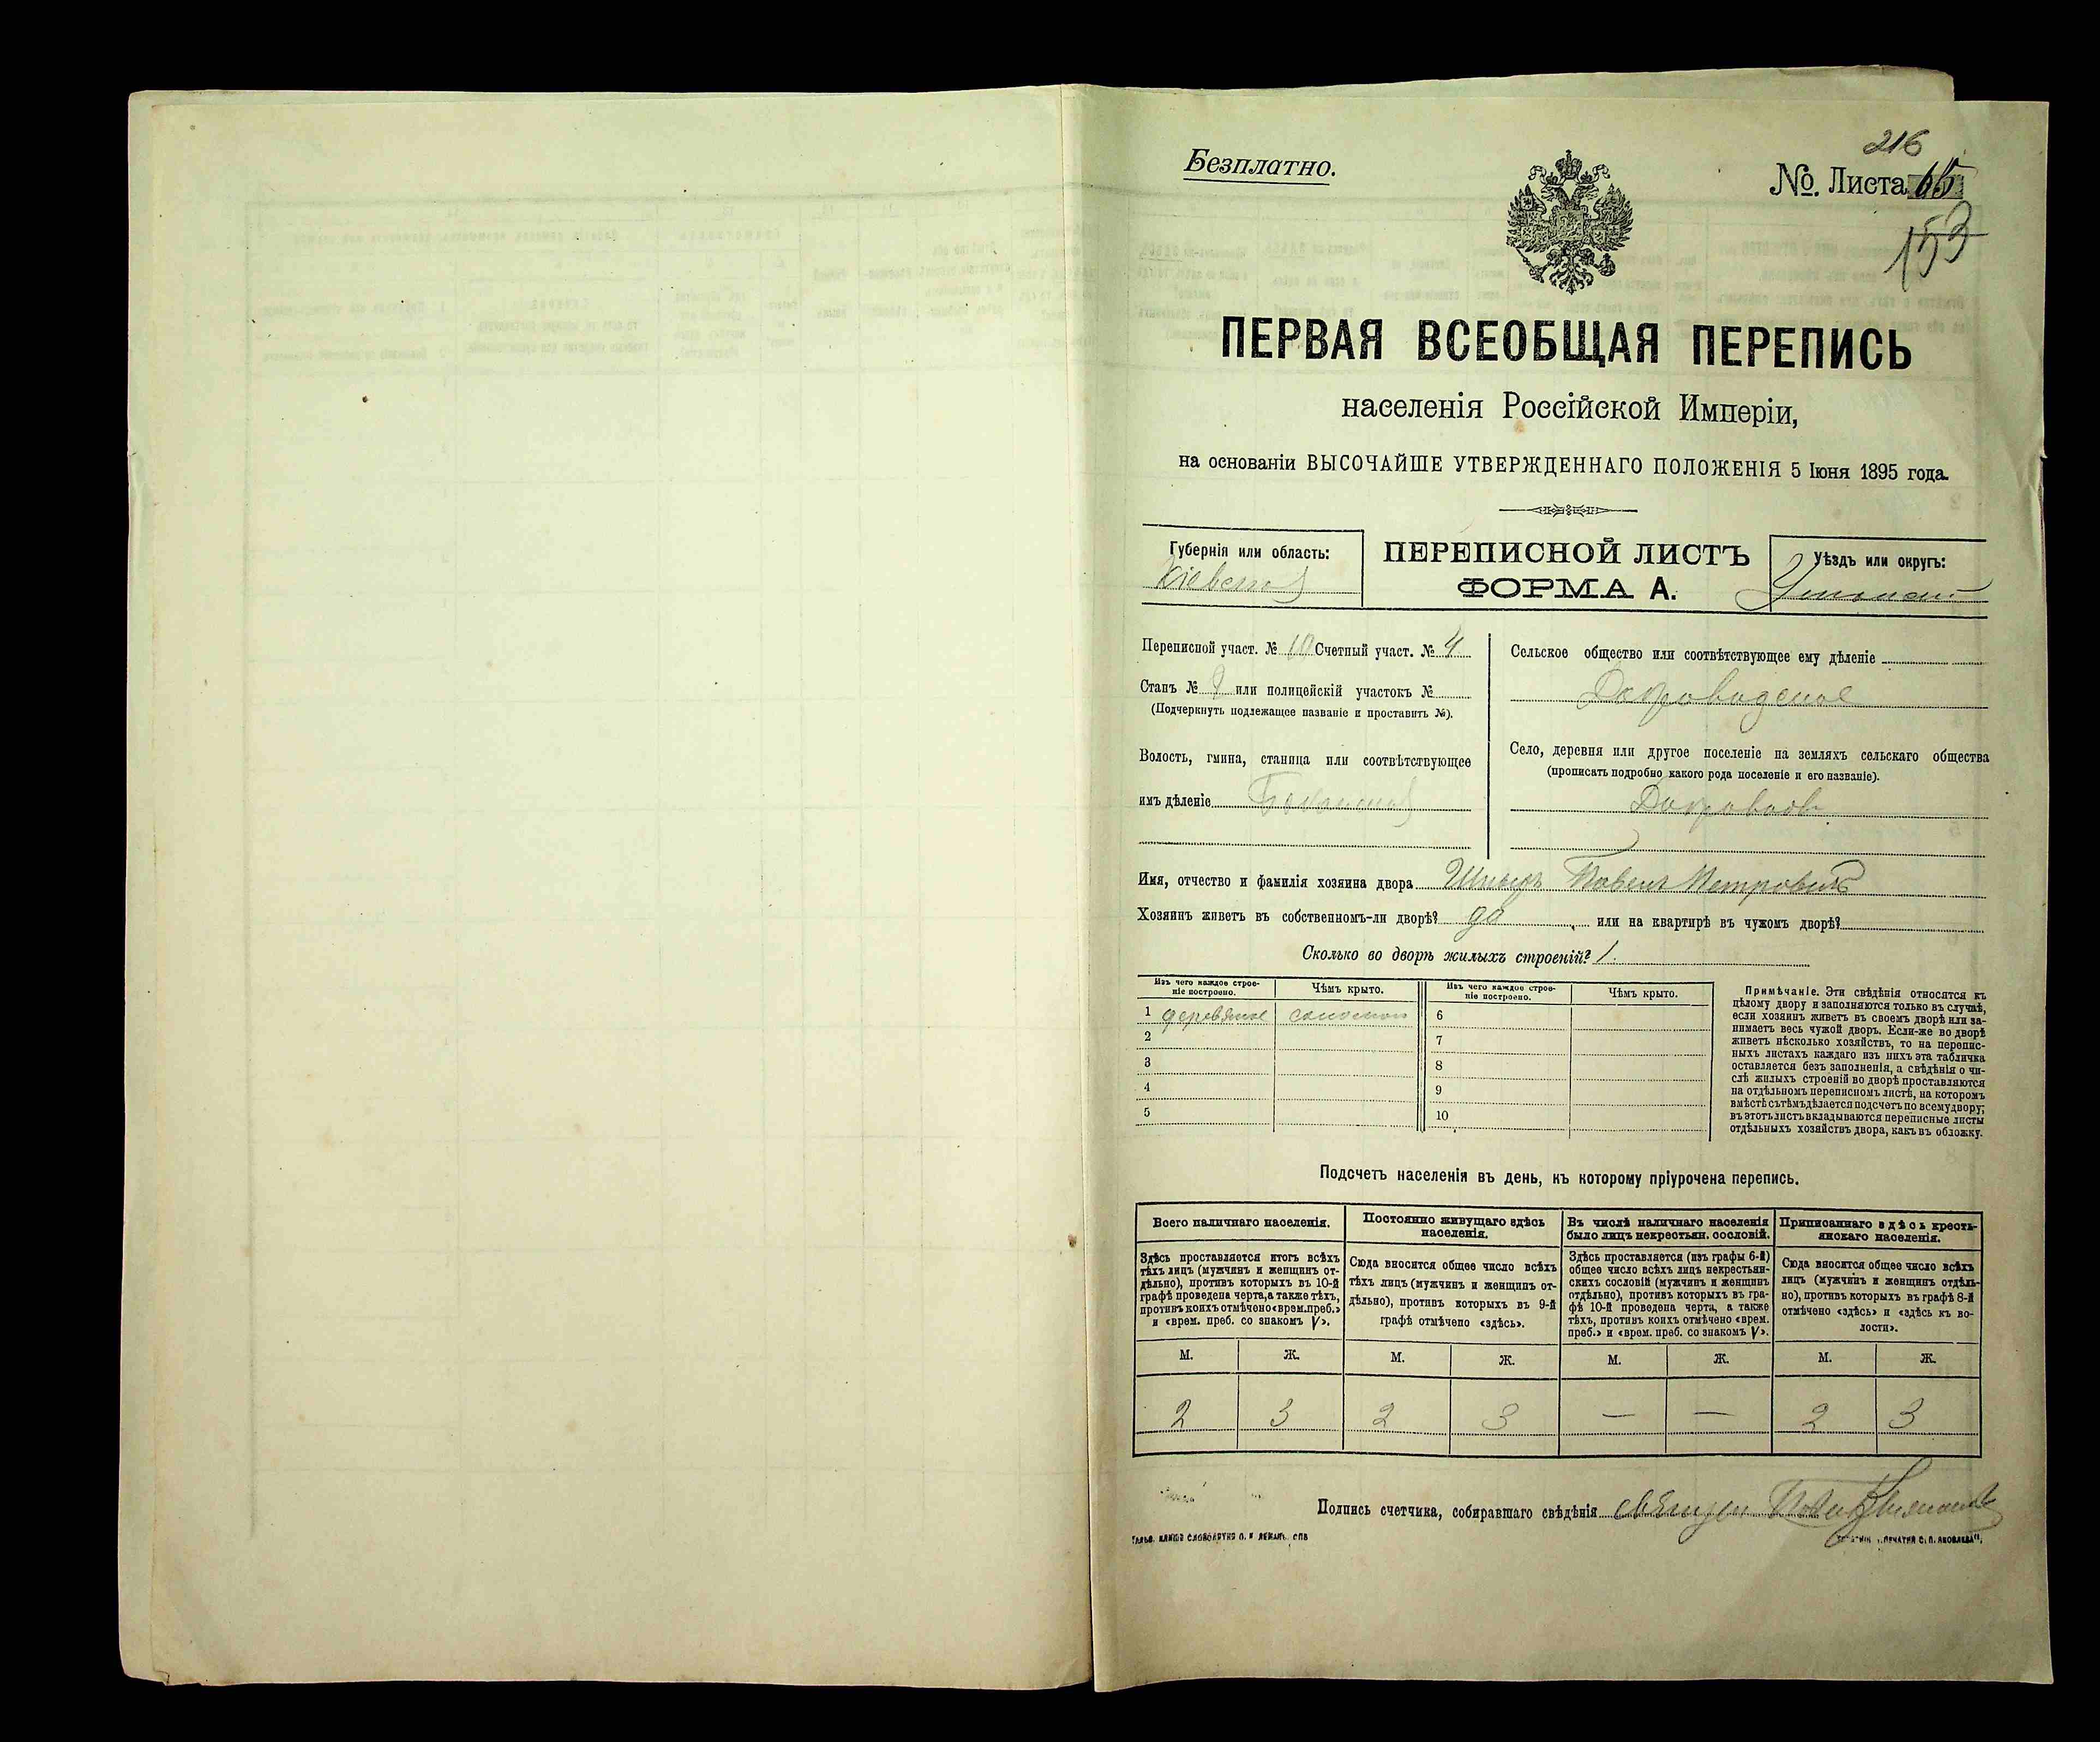 216
Безплатно.
№. Листа 65
153
ПЕРВАЯ ВСЕОБЩАЯ ПЕРЕПИСЬ
населенія Россійской Имперіи,
на основаніи ВЫСОЧАЙШЕ УТВЕРЖДЕННАГО ПОЛОЖЕНІЯ 5 Іюня 1895 года.
Губернія или область:
Кіевской
ПЕРЕПИСНОЙ ЛИСТЪ
ФОРМА А.
Уѣздъ или округъ:
Переписной участ. № 10 Счетный участ. № 4
Станъ № или полицейскій участокъ №
(Подчеркнуть подлежащее названіе и проставить №).
Волость, гмина, станица или соотвѣтствующее
имъ дѣленіе
Сельское общество или соотвѣтствующее ему дѣленіе
Село, деревня или другое поселеніе на земляхъ сельскаго общества
(прописать подробно какого рода поселеніе и его названіе).
Имя, отчество и фамилія хозяина двора Павелъ Петровичъ
Хозяинъ живетъ въ собственномъ-ли дворѣ? да или на квартирѣ въ чужомъ дворѣ?
Сколько во дворѣ жилыхъ строеній? 1.
Изъ чего каждое строе-
ніе построено.
Чѣмъ крыто.
Изъ чего каждое строе-
ніе построено.
Чѣмъ крыто.
1 деревяное соломой
2
3
4
5
6
7
8
9
10
Примѣчаніе. Эти свѣдѣнія относятся къ
цѣлому двору и заполняются только въ случаѣ,
если хозяинъ живетъ въ своемъ дворѣ или за-
нимаетъ весь чужой дворъ. Если-же во дворѣ
живетъ нѣсколько хозяйствъ, то на перепис-
ныхъ листахъ каждаго изъ нихъ эта табличка
оставляется безъ заполненія, а свѣдѣнія о чи-
слѣ жилыхъ строеній во дворѣ проставляются
на отдѣльномъ переписномъ листѣ, на которомъ
вмѣстѣ съ тѣмъ дѣлается подсчетъ по всему двору;
въ этотъ листъ вкладываются переписные листы
отдѣльныхъ хозяйствъ двора, какъ въ обложку.
Подсчетъ населенія въ день, къ которому пріурочена перепись.
Всего наличнаго населенія.
Постоянно живущаго здѣсь
населенія.
Въ числѣ наличнаго населенія
было лицъ некрестьян. сословій.
Приписаннаго здѣсь кресть-
янскаго населенія.
Здѣсь проставляется итогъ всѣхъ
тѣхъ лицъ (мужчинъ и женщинъ от-
дѣльно), противъ которыхъ въ 10-й
графѣ проведена черта, а также тѣхъ,
противъ коихъ отмѣчено «врем. преб.»
и «врем. преб. со знакомъ V».
Сюда вносится общее число всѣхъ
тѣхъ лицъ (мужчинъ и женщинъ от-
дѣльно), противъ которыхъ въ 9-й
графѣ отмѣчено «здѣсь».
Здѣсь проставляется (изъ графы 6-й)
общее число всѣхъ лицъ некрестьян-
скихъ сословій (мужчинъ и женщинъ
отдѣльно), противъ которыхъ въ гра-
фѣ 10-й проведена черта, а также
тѣхъ, противъ коихъ отмѣчено «врем.
преб.» и «врем. преб. со знакомъ V».
Сюда вносится общее число всѣхъ
лицъ (мужчинъ и женщинъ отдѣль-
но), противъ которыхъ въ графѣ 8-й
отмѣчено «здѣсь» и «здѣсь къ во-
лости».
М. Ж. М. Ж. М. Ж. М. Ж.
2 3 2 3 — — 2 3
Подпись счетчика, собиравшаго свѣдѣнія